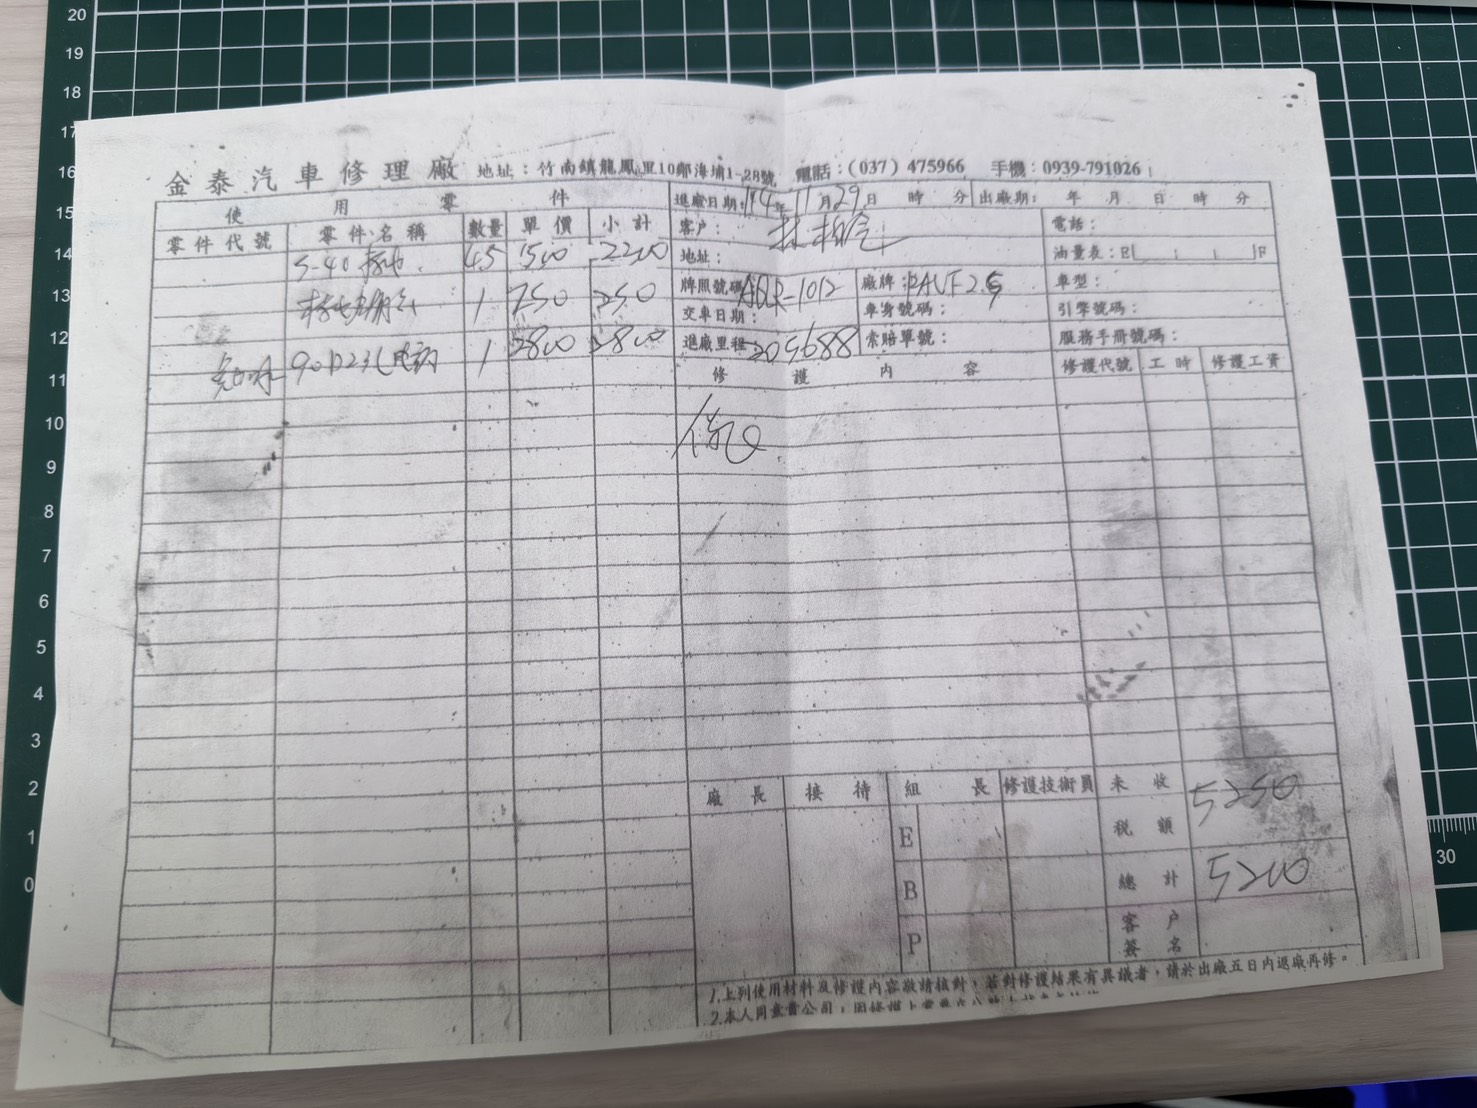 20
19
18
17
16
15
14
13
12
11
10
9
8
7
6
5
4
3
2
1
0
30
金泰汽車修理廠 地址：竹南鎮龍鳳里10鄰海埔1-28號 電話：(037) 475966 手機：0939-791026
使用零件 進廠日期：114年11月29日 時 分 出廠期： 年 月 日 時 分
零件代號 零件名稱 數量 單價 小計 客戶： 電話：
5-40 45 2200 地址： 油量表：E F
1 250 250 牌照號碼 -1012 廠牌： 車型：
交車日期： 車身號碼： 引擎號碼：
90D23L電瓶 1 2800 2800 進廠里程 205688 索賠單號： 服務手冊號碼：
修護內容 修護代號 工時 修護工資
廠長 接待 組長 修護技術員 未收 5250
E 稅額
B 總計 5200
P 客戶簽名
1.上列使用材料及修護內容敬請核對，若對修護結果有異議者，請於出廠五日內返廠再修。
2.本人同意貴公司，因修護上需要